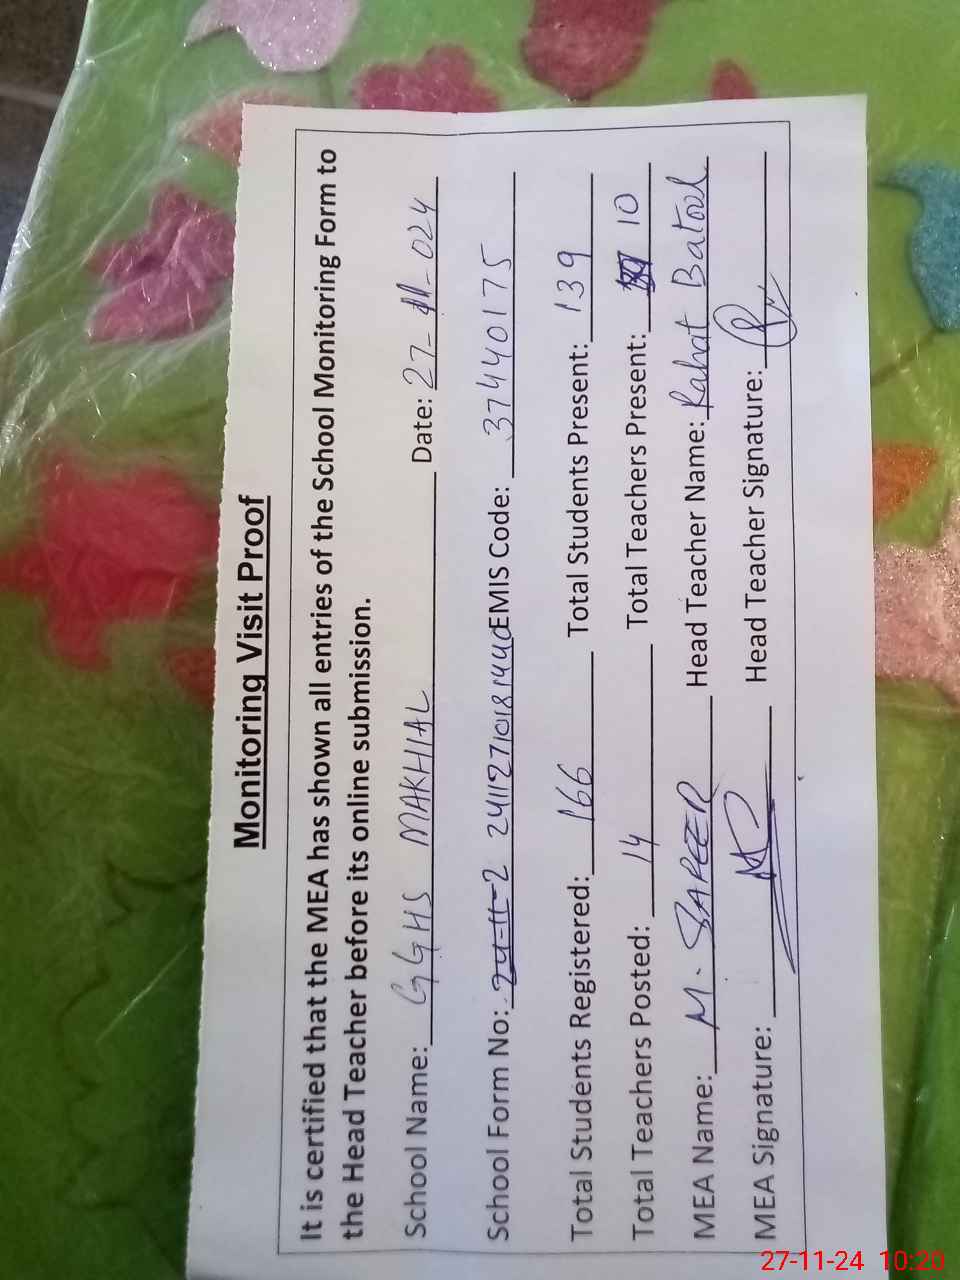 Monitoring Visit Proof
It is certified that the MEA has shown all entries of the School Monitoring Form to
the Head Teacher before its online submission.
School Name: GGHS MAKHIAL Date: 27-11-024
School Form No: 24-11-2 24112710181440 EMIS Code: 37440175
Total Students Registered: 166 Total Students Present: 139
Total Teachers Posted: 14 Total Teachers Present: 10
MEA Name: M. SAFEER Head Teacher Name: Rahat Batool
MEA Signature: Head Teacher Signature:
27-11-24 10:20